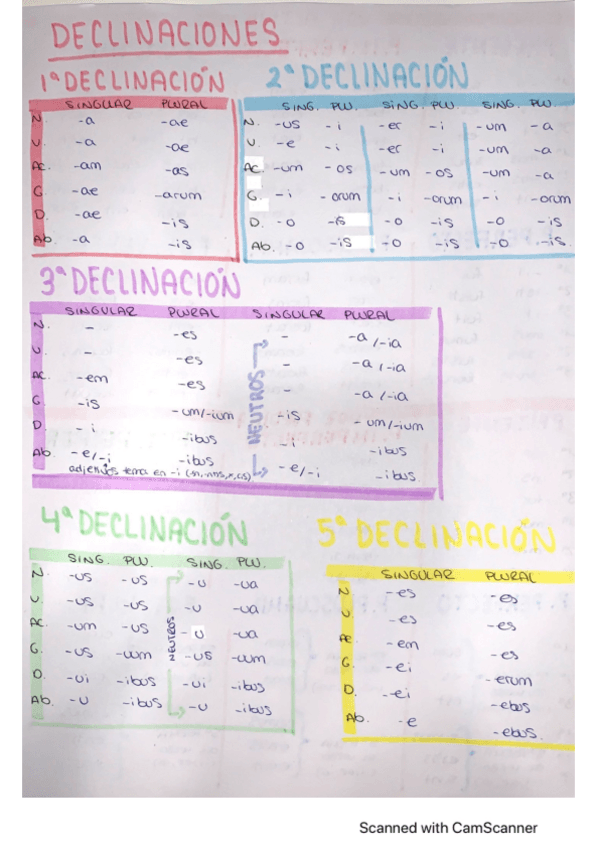 DECLINACIONES
1ª DECLINACIÓN 2ª DECLINACIÓN
SINGULAR PLURAL
N. -a -ae
V. -a -ae
AC. -am -as
G. -ae -arum
D. -ae -is
Ab. -a -is
SING. PLU. SING. PLU. SING. PLU.
N. -us -i -er -i -um -a
V. -e -i -er -i -um -a
AC. -um -os -um -os -um -a
G. -i -orum -i -orum -i -orum
D. -o -is -o -is -o -is
Ab. -o -is -o -is -o -is.
3ª DECLINACIÓN
SINGULAR PLURAL SINGULAR PLURAL
NEUTROS
N. - -es - -a/-ia
V. - -es - -a/-ia
AC. -em -es - -a/-ia
G -is -um/-ium -is -um/-ium
D -i -ibus -i -ibus
Ab. -e/-i -ibus -e/-i -ibus
tema en -i
4ª DECLINACIÓN 5ª DECLINACIÓN
SING. PLU. SING. PLU.
NEUTROS
N. -us -us -u -ua
V -us -us -u -ua
AC. -um -us -u -ua
G. -us -uum -us -uum
D. -ui -ibus -ui -ibus
Ab. -u -ibus -u -ibus
SINGULAR PLURAL
N -es -es
V. -es -es
Ac. -em -es
G. -ei -erum
D. -ei -ebus
Ab. -e -ebus.
Scanned with CamScanner